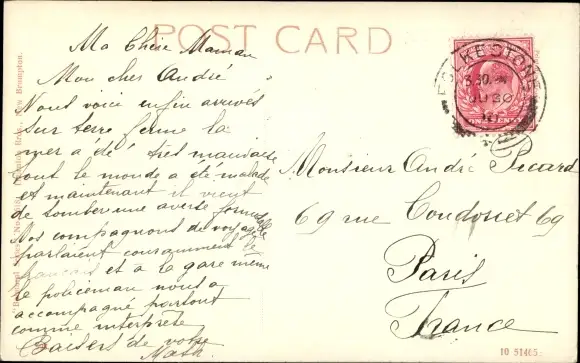 POST CARD
Ma Chère Maman
Mon cher André
Nous voici enfin arrivés
sur terre ferme la
mer a été très mauvaise
tout le monde a été malade
et maintenant il vient
de tomber une averse formidable
Nos compagnons de voyage
parlaient couramment le
français et à la gare même
le policeman nous a
accompagné partout
comme interprète
Baisers de votre
Math.
FOLKESTONE
3.30
JU 30
10
Monsieur André Picard
69 rue Condorcet 69
Paris
France
New Brompton.
10 51465